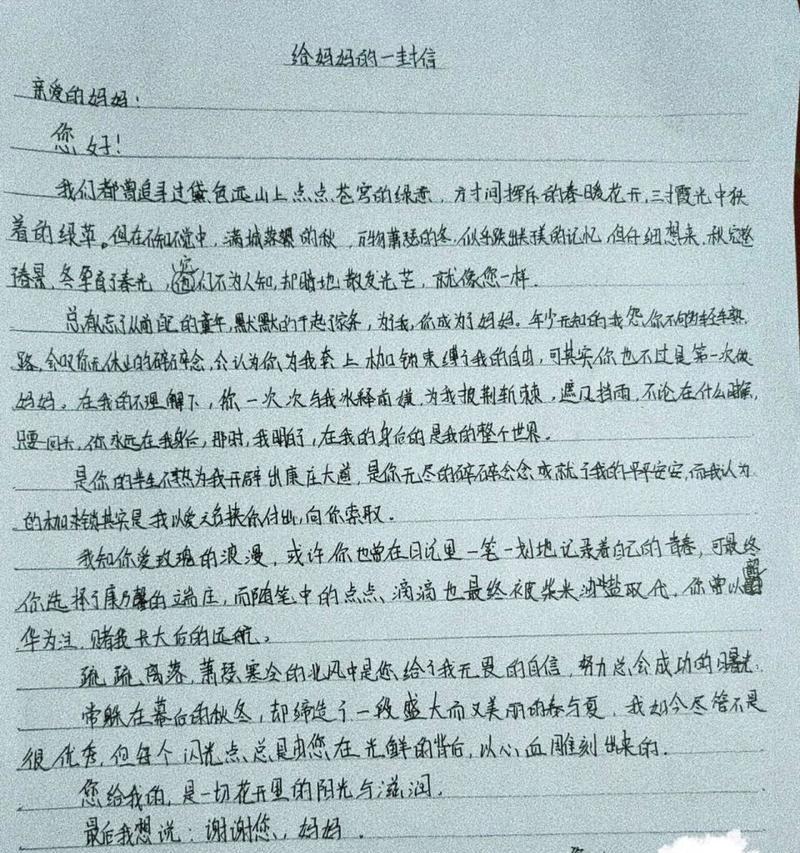 给妈妈的一封信
亲爱的妈妈：
您好！
我们都曾追寻过黛色远山上点点苍穹的绿意，方寸间挥斥的春暖花开，三寸霞光中秩
着的绿草。但在不知不觉中，满城落翠的秋，万物萧瑟的冬，似乎跌出未璞的记忆，但仔细想来，秋完整
降景，冬孕育了春光，它们不为人知，却暗地散发光芒，就像您一样。
总有忘了从前的童年，默默的干起了家务，为了我，你成为了妈妈。年少无知的我怨你不够轻车熟
路，会叹你无休止的碎碎念，会认为你为我套上枷锁束缚了我的自由，可其实你也不过是第一次做
妈妈。在我的不理解下，你一次次与我冰释前嫌，为我披荆斩棘，遮风挡雨，不论在什么时候，
只要回头，你永远在我身后，那时，我明白了，在我的身后的是我的整个世界。
是你的半生不熟为我开辟出康庄大道，是你无尽的碎碎念念成就了我的平平安安，而我认为
的枷锁其实是我以爱之名挟你付出，向你索取。
我知你爱玫瑰的浪漫，或许你也曾在日记里一笔一划地记录着自己的青春，可最终
你选择了康乃馨的端庄，而随笔中的点点滴滴也最终被柴米油盐取代，你曾以韶
华为注，赌我长大后的远航。
疏疏离落，萧瑟寒冷的北风中是您给了我无畏的自信，努力总会成功的曙光。
常躲在幕后的秋冬，却缔造了一段盛大而又美丽的春与夏，我如今尽管不是
很优秀，但每个闪光点总是由您在光鲜的背后，以心血雕刻出来的。
您给我的，是一切花开里的阳光与滋润。
最后我想说：谢谢您，妈妈。